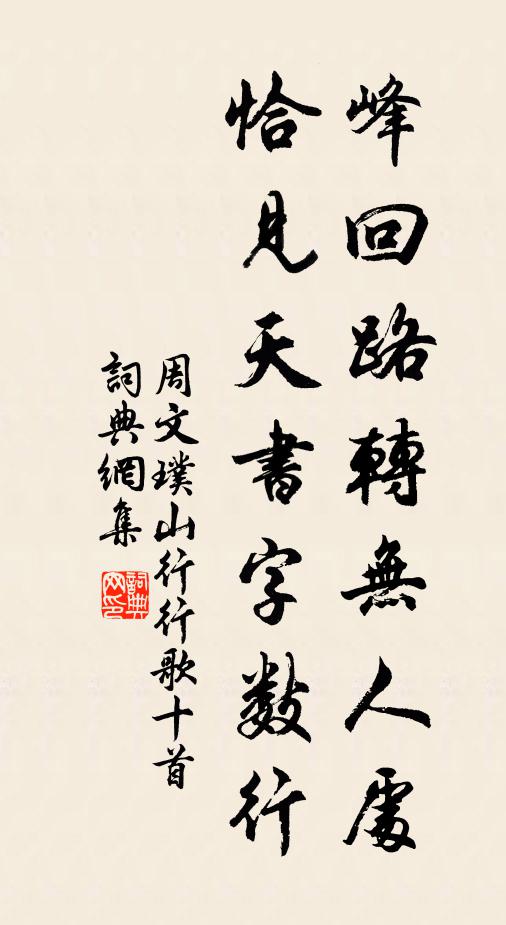 峰回路轉無人處
恰見天書字數行
周文璞山行行歌十首
詞典網集
詞典網印